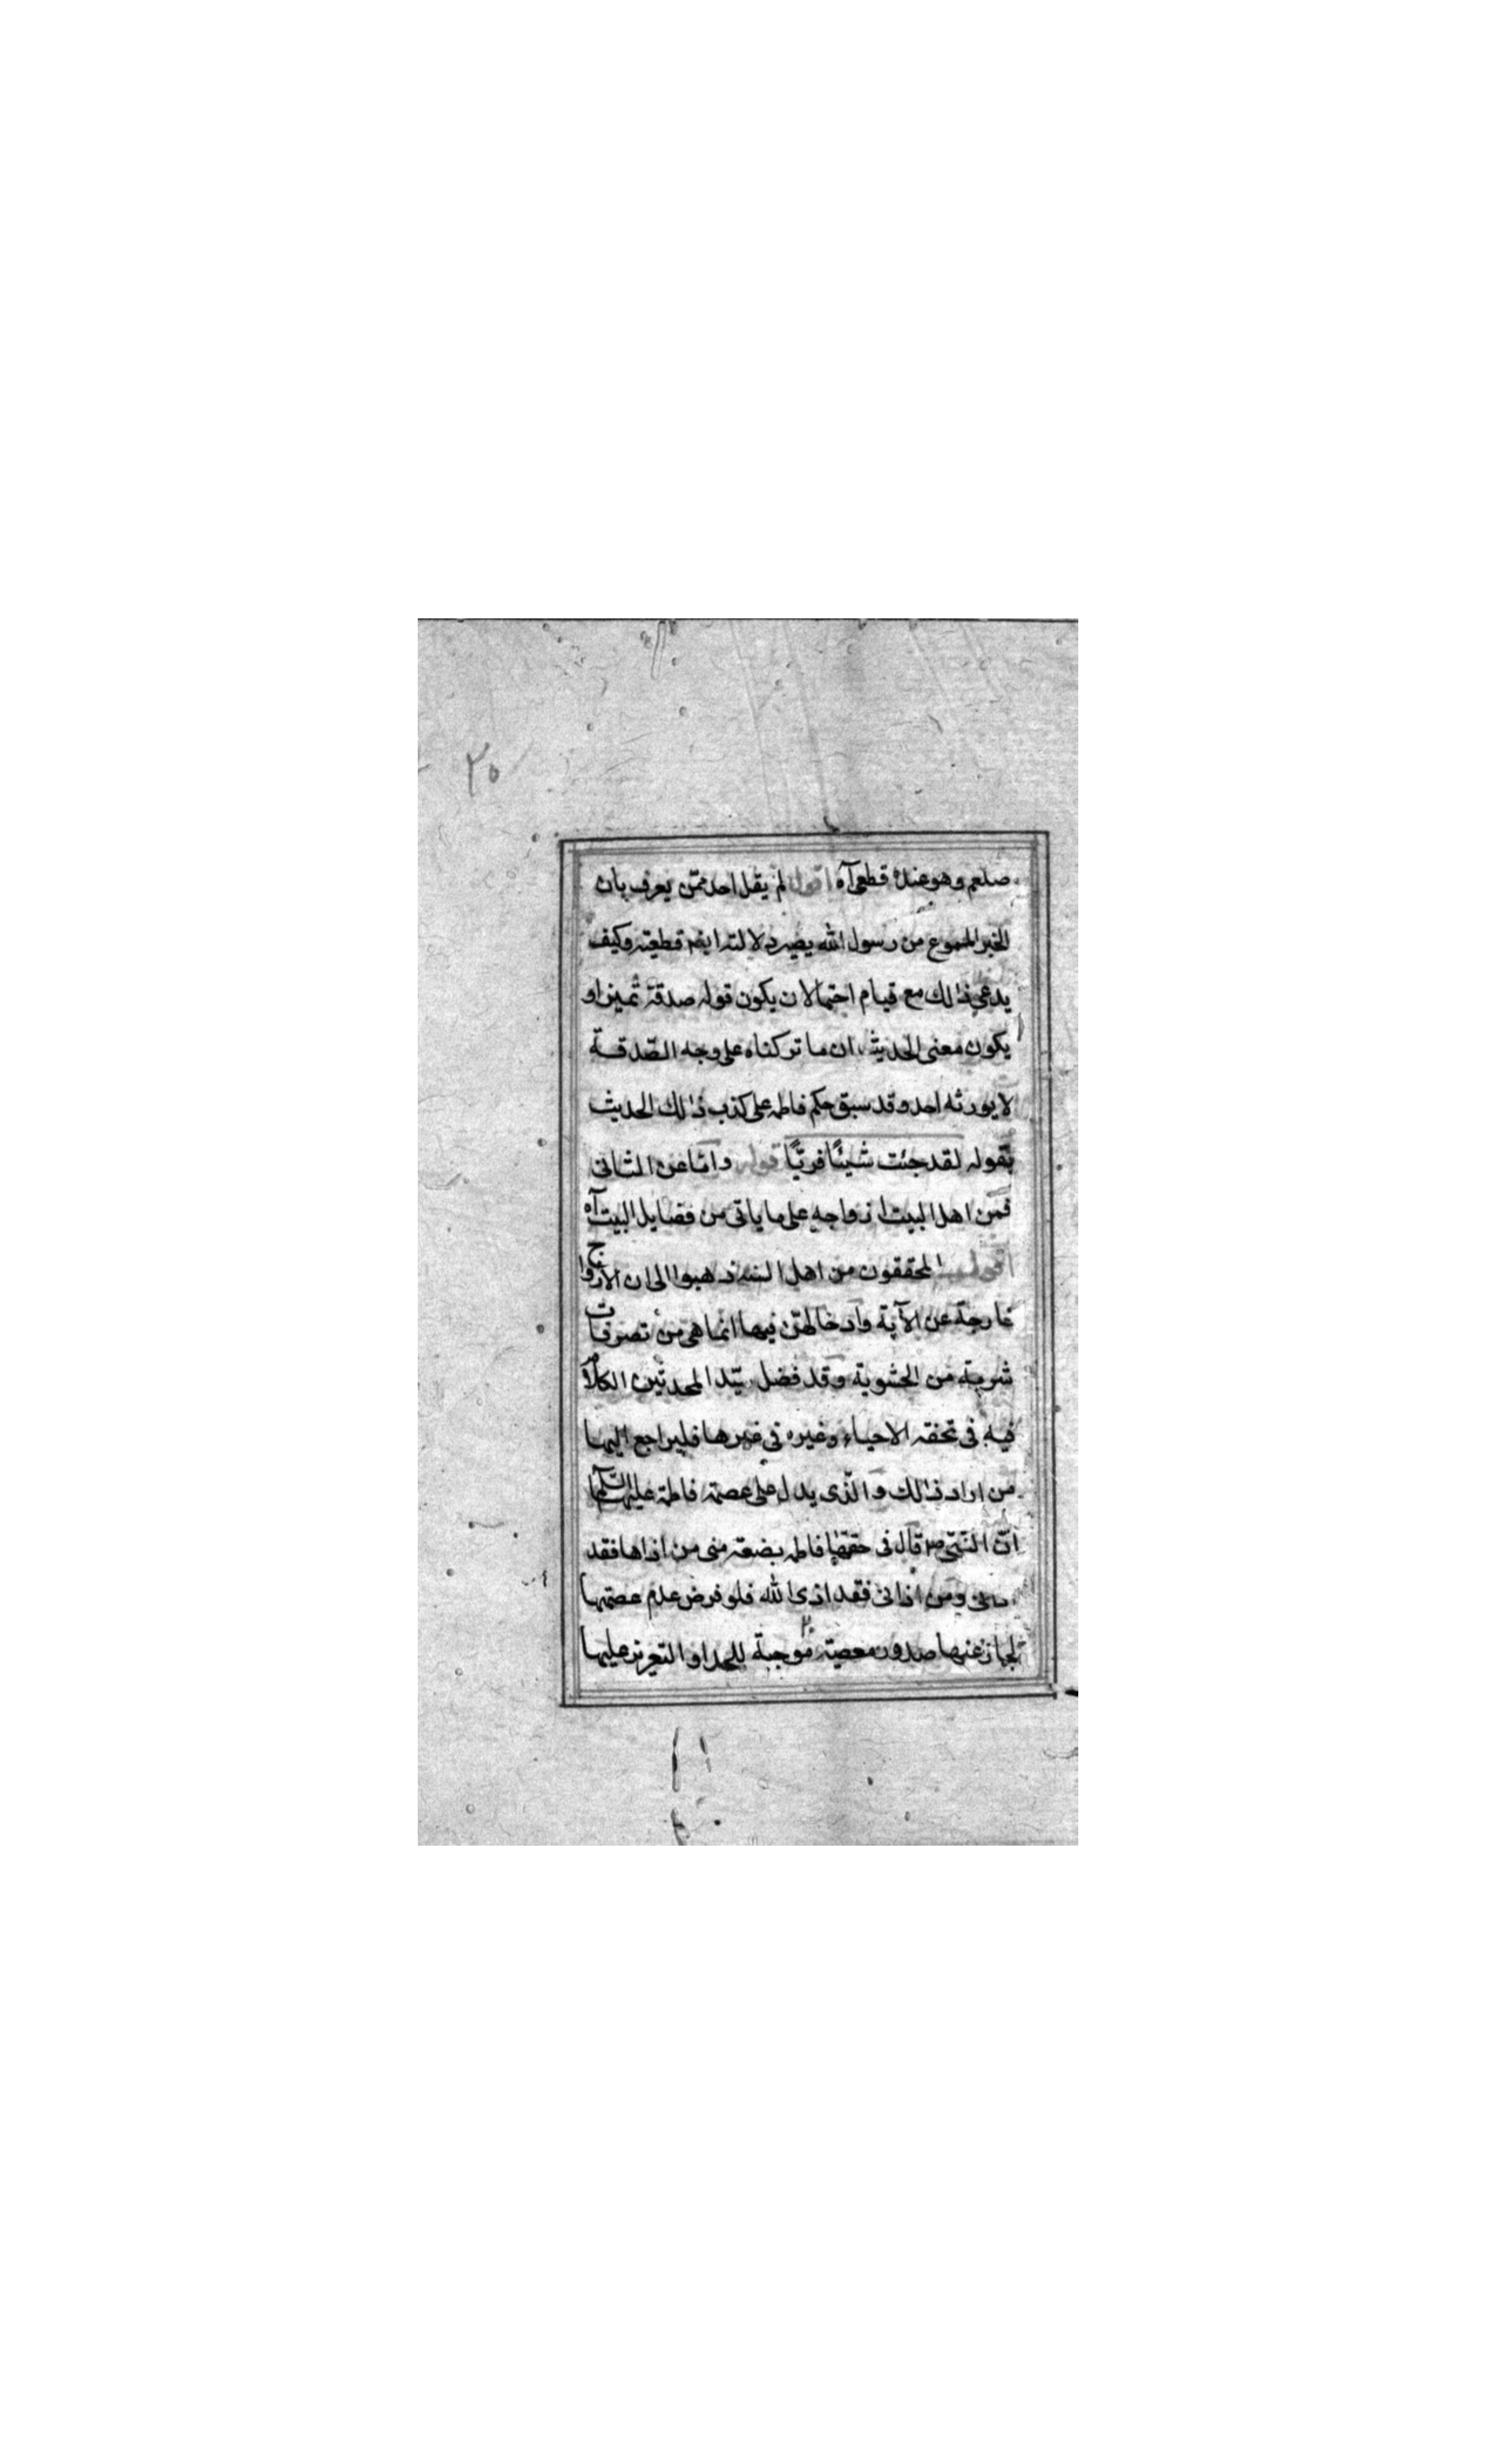 ٢٥
صلعم وهو عنده قطعي آه اقول لم يقل احد ممن يعرف بان
الخبر المسموع من رسول الله يصير دلالته ايضا قطعيته وكيف
يدعي ذالك مع قيام احتمالان يكون قوله صدقة تميزا و
يكون معنى الحديث ان ما تركناه على وجه الصّدقة
لا يورثه احد وقد سبق حكم فاطمه على كذب ذالك الحديث
بقوله لقد جئت شيئًا فريًّا قوله وامّا عن الثانى
فمن اهل البيت ازواجه على ما ياتى من فضايل البيت آه
اقول المحققون من اهل السنه ذهبوا الى ان الازواج
خارجة عن الآية وادخالهنّ فيها انما هى من تصرفات
شرمة من الحشوية وقد فضل سيّد المحدثين الكلام
فيه فى تحفه الاحباء وغيره فى غيرها فليراجع اليها
من اراد ذالك والّذى يدل على عصمة فاطمة عليها السّلام
انّ النّبيّ ص قال فى حقها فاطمه بضعة منى من اذاها فقد
اذانى ومن اذانى فقد اذى الله فلو فرض عدم عصمتها
لجاز عنها صدور معصية موجبة للحد او التعزير عليها